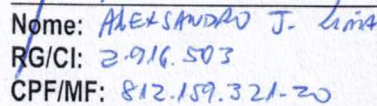 Nome: ALEKSANDRO J. LIMA
RG/CI: 2.916.503
CPF/MF: 812.159.321-20